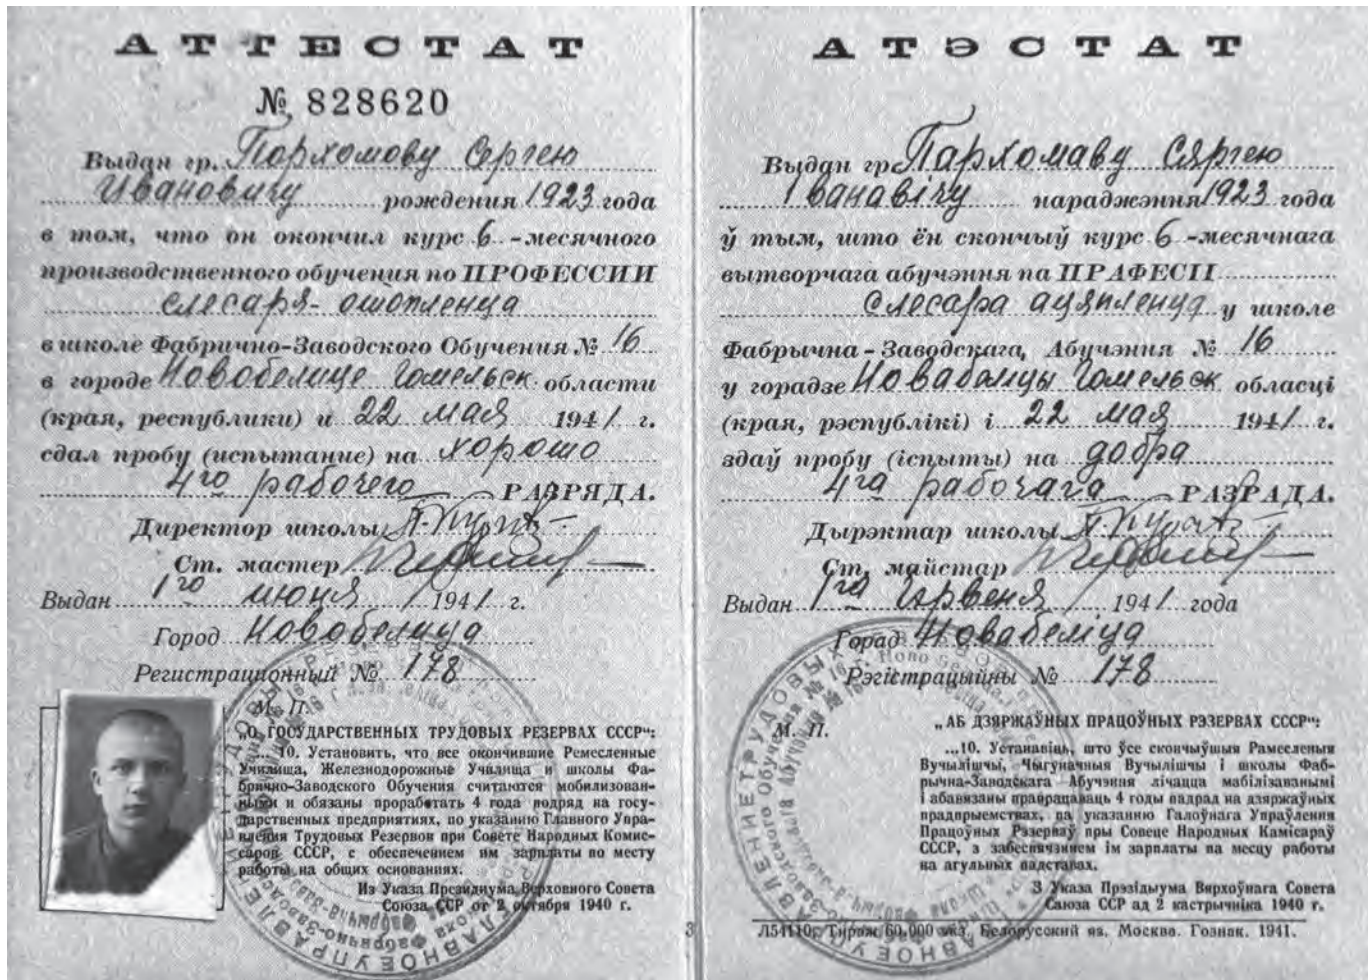 АТТЕСТАТ
№ 828620
Выдан гр. Пархомову Сергею
Ивановичу рождения 1923 года
в том, что он окончил курс 6-месячного
производственного обучения по ПРОФЕССИИ
слесаря-отопленца
в школе Фабрично-Заводского Обучения № 16
в городе Новобелице Гомельск. области
(края, республики) и 22 мая 1941 г.
сдал пробу (испытание) на хорошо
4го рабочего РАЗРЯДА.
Директор школы
Ст. мастер
Выдан 1го июня 1941 г.
Город Новобелица
Регистрационный № 178
М. П.
„О ГОСУДАРСТВЕННЫХ ТРУДОВЫХ РЕЗЕРВАХ СССР“:
...10. Установить, что все окончившие Ремесленные
Училища, Железнодорожные Училища и школы Фа-
брично-Заводского Обучения считаются мобилизован-
ными и обязаны проработать 4 года подряд на госу-
дарственных предприятиях, по указанию Главного Упра-
вления Трудовых Резервов при Совете Народных Комис-
саров СССР, с обеспечением им зарплаты по месту
работы на общих основаниях.
Из Указа Президиума Верховного Совета
Союза ССР от 2 октября 1940 г.
АТЭСТАТ
Выдан гр. Пархомаву Сяргею
Іванавічу нараджэння 1923 года
ў тым, што ён скончыў курс 6-месячнага
вытворчага абучэння па ПРАФЕСІІ
слесара ацяпленца у школе
Фабрычна-Заводскага Абучэння № 16
у горадзе Новабеліцы Гомельск обласці
(края, рэспублікі) і 22 мая 1941 г.
здаў пробу (іспыты) на добра
4га рабочага РАЗРАДА.
Дырэктар школы
Ст. майстар
Выдан 1га чэрвеня 1941 года
Горад Новабеліца
Рэгістрацыйны № 178
М. П.
„АБ ДЗЯРЖАЎНЫХ ПРАЦОЎНЫХ РЭЗЕРВАХ СССР“:
...10. Устанавіць, што ўсе скончыўшыя Рамесленыя
Вучылішчы, Чыгуначныя Вучылішчы і школы Фаб-
рычна-Заводскага Абучэння лічацца мабілізаванымі
і абавязаны прапрацаваць 4 годы падрад на дзяржаўных
прадпрыемствах, па указанню Галоўнага Упраўлення
Працоўных Рэзерваў пры Совеце Народных Камісараў
СССР, з забеспячэннем ім зарплаты па месцу работы
на агульных падставах.
З Указа Прэзідыума Вярхоўнага Совета
Саюза ССР ад 2 кастрычніка 1940 г.
3
Л54110. Тираж 60.000 экз. Белорусский яз. Москва. Гознак. 1941.